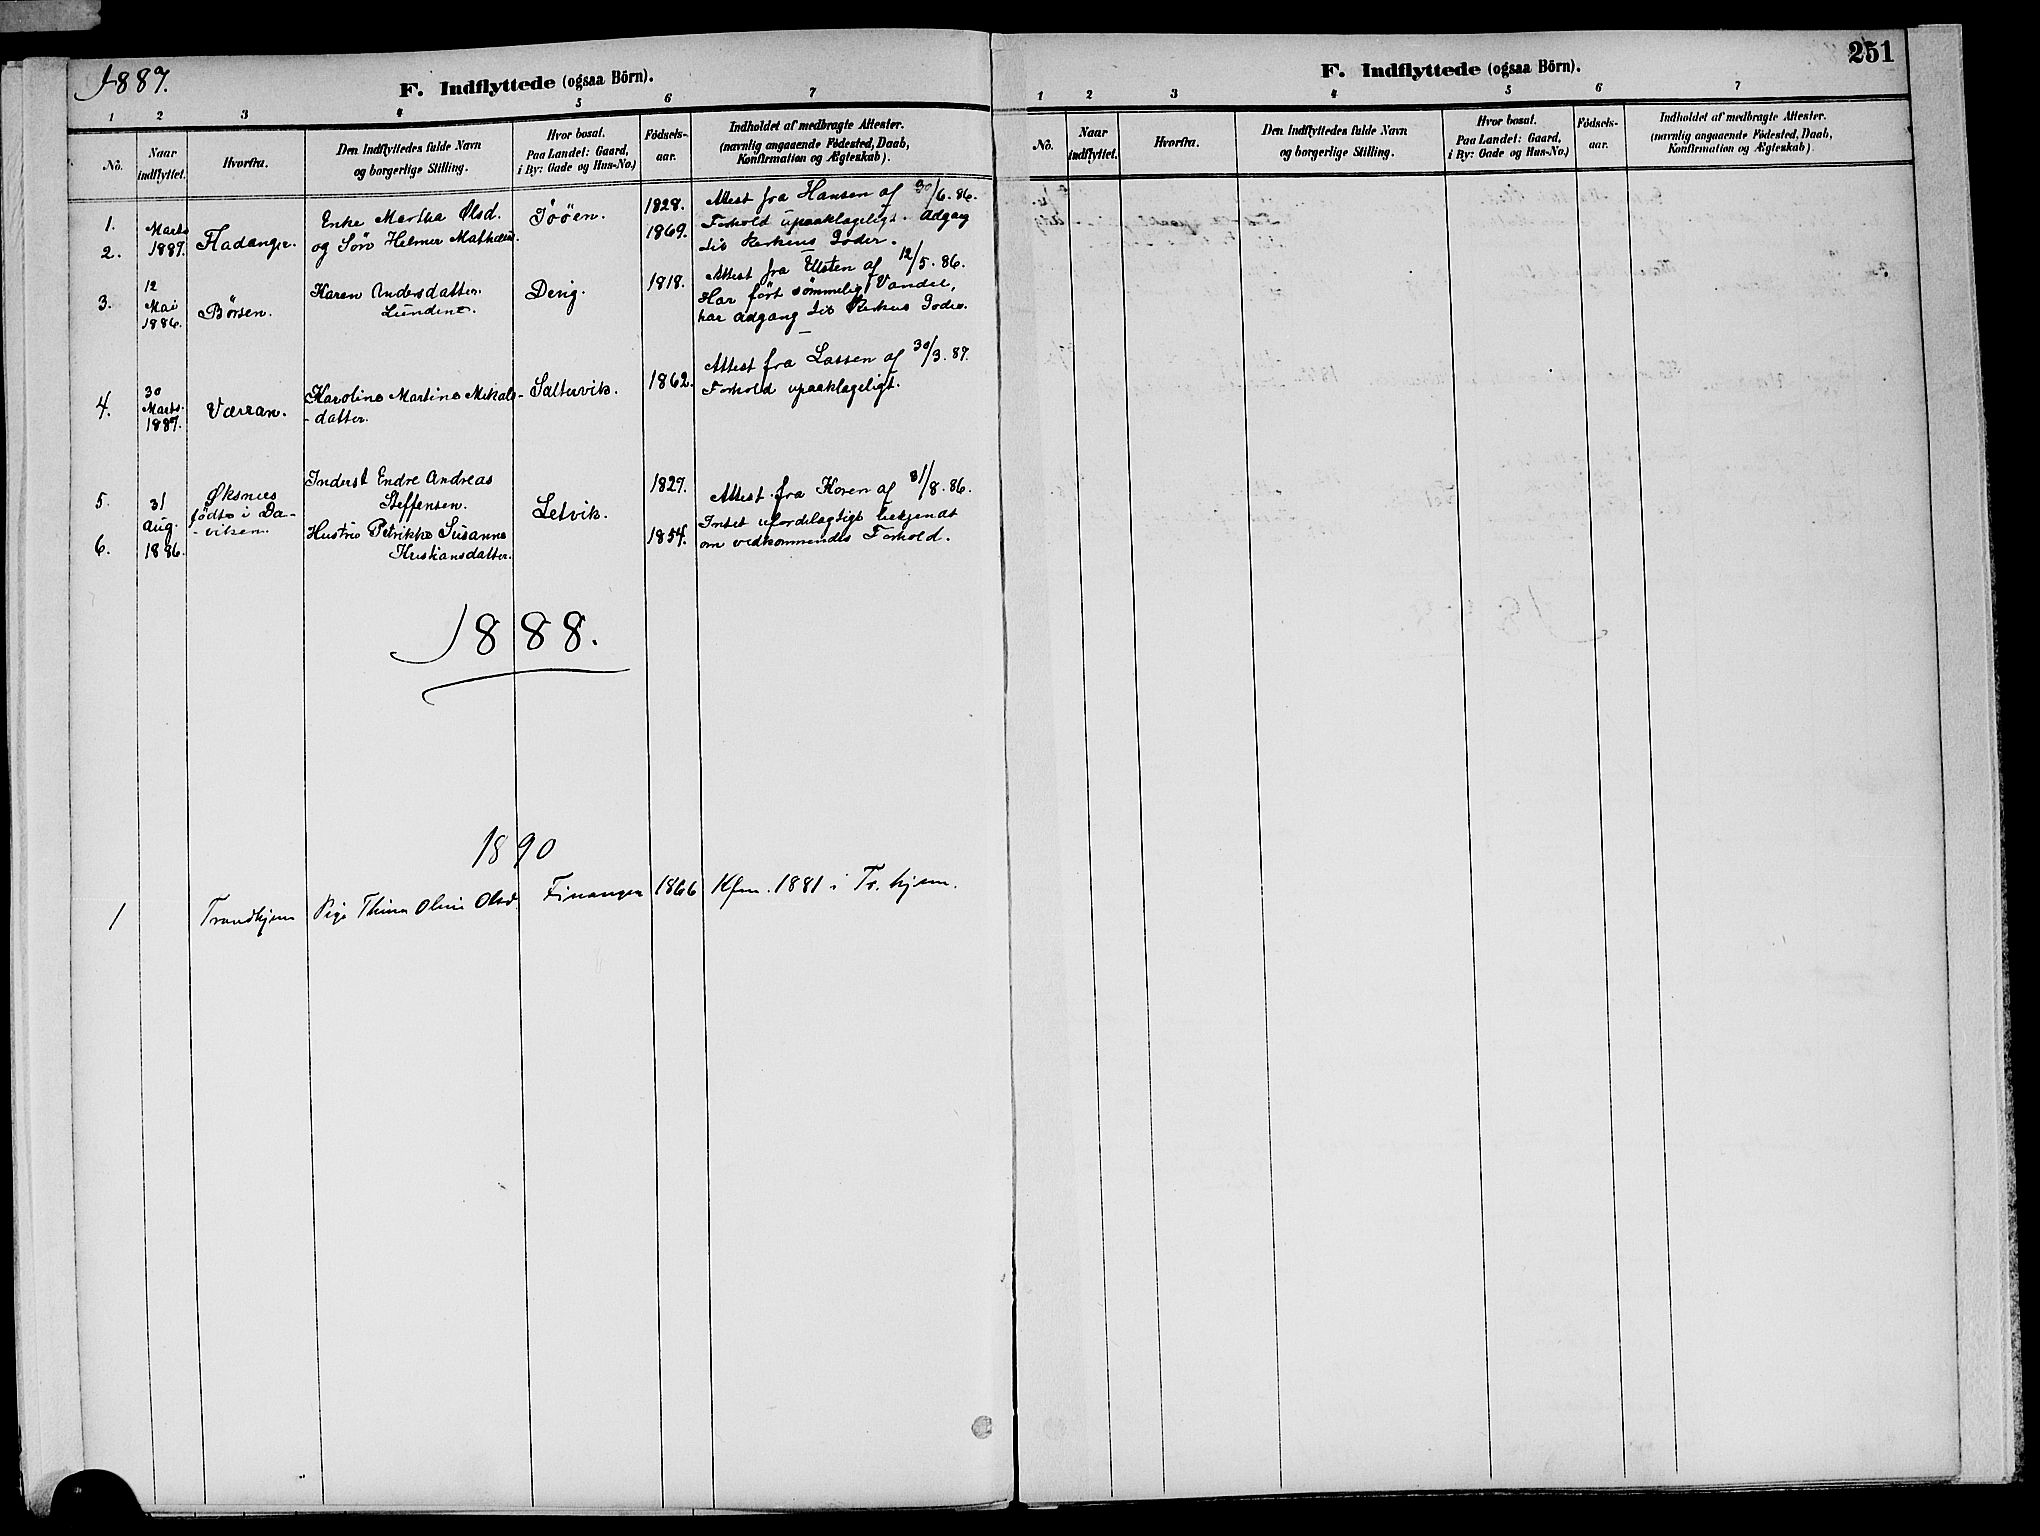 1887.
F. Indflyttede (ogsaa Börn).
1 2 3 4 5 6 7
No.
Naar indflyttet.
Hvorfra.
Den Indflyttedes fulde Navn
og borgerlige Stilling.
Hvor bosat.
Paa Landet: Gaard,
i By: Gade og Hus-No.)
Fødsels-
aar.
Indholdet af medbragte Attester.
(navnlig angaaende Fødested, Daab,
Konfirmation og Ægteskab).
1.
2.
Marts
1887.
Fladanger.
Enke Martha Olsd.
og Søn Helmer Mathesen.
1828.
1869.
Attest fra Hansen af 30/6.86.
Forhold upaaklageligt. Adgang
til Kirkens Goder.
3.
12
Mai
1886.
Børsen.
Karen Andersdatter
Lundene.
1818.
Attest fra Ulsten af 12/5.86.
Har ført sømmelig Vandel,
har adgang til Kirkens Goder.
4.
30
Marts
1887.
Værran.
Karoline Martine Mikals-
-datter.
Saltuvik.
1862.
Attest fra Lassen af 30/3.87.
Forhold upaaklageligt.
5.
6.
31
Aug.
1886.
Øksnies
født i Da-
-viksen.
Inderst Endre Andreas
Steffensen.
Hustru Petrikke Susanne
Kristiansdatter.
Letvik.
1827.
1854.
Attest fra Koren af 31/8.86.
Intet ufordelagtigt bekjendt
om vedkommendes Forhold.
1888.
1890
1
Trondhjem
Pige Thina Oline Olsd.
Finangen
1866
Kfm. 1881 i Tr.hjem.
251
F. Indflyttede (ogsaa Börn).
1 2 3 4 5 6 7
No.
Naar indflyttet.
Hvorfra.
Den Indflyttedes fulde Navn
og borgerlige Stilling.
Hvor bosat.
Paa Landet: Gaard,
i By: Gade og Hus-No.)
Fødsels-
aar.
Indholdet af medbragte Attester.
(navnlig angaaende Fødested, Daab,
Konfirmation og Ægteskab).